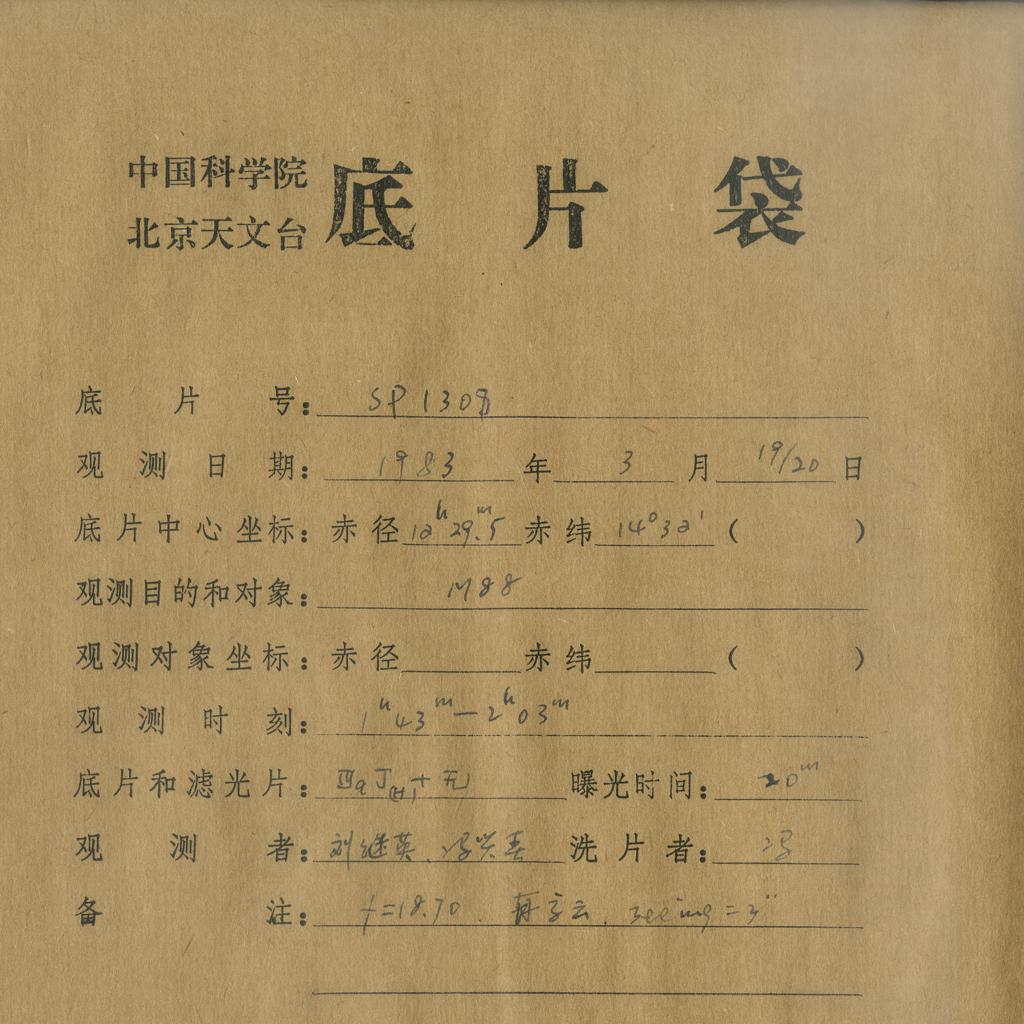 中国科学院
北京天文台
底片袋
底片号：SP1308
观测日期：1983年3月19/20日
底片中心坐标：赤径12h29m.5赤纬14°32′（ ）
观测目的和对象：M88
观测对象坐标：赤径 赤纬 （ ）
观测时刻：1h43m—2h03m
底片和滤光片：+无 曝光时间：20m
观测者：刘继英、冯兴春 洗片者：冯
备注：f=18.70. 云, seeing=3″